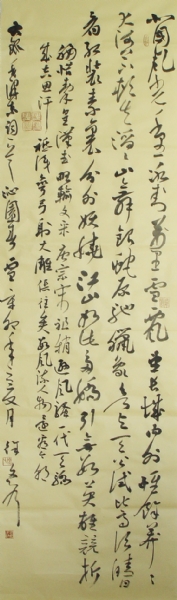 北國風光千里冰封萬里雪飄望長城內外惟餘莽々
大河上下頓失滔々山舞銀蛇原馳蠟象欲與天公試比高須晴日
看紅裝素裹分外妖嬈江山如此多嬌引無數英雄競折
腰惜秦皇漢武略輸文采唐宗宋祖稍遜風騷一代天驕
成吉思汗祇識彎弓射大雕俱往矣數風流人物還看今朝
毛澤東詞一首沁園春雪辛卯年三月